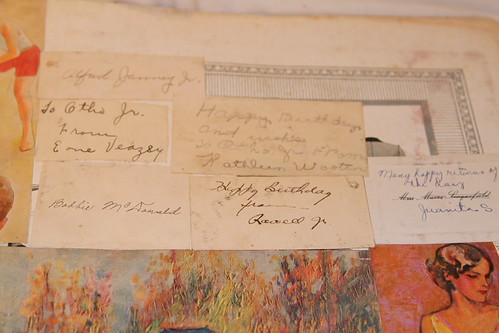 Alfred Janney Jr.
To Otho Jr.
From
Eone Veazey
Happy Birthday
and wishes
To Otho Jr. From
Kathleen Wooten
Bobbie McDonald
Happy Birthday
from
Jr
Many happy returns of
the Day
Juanita S